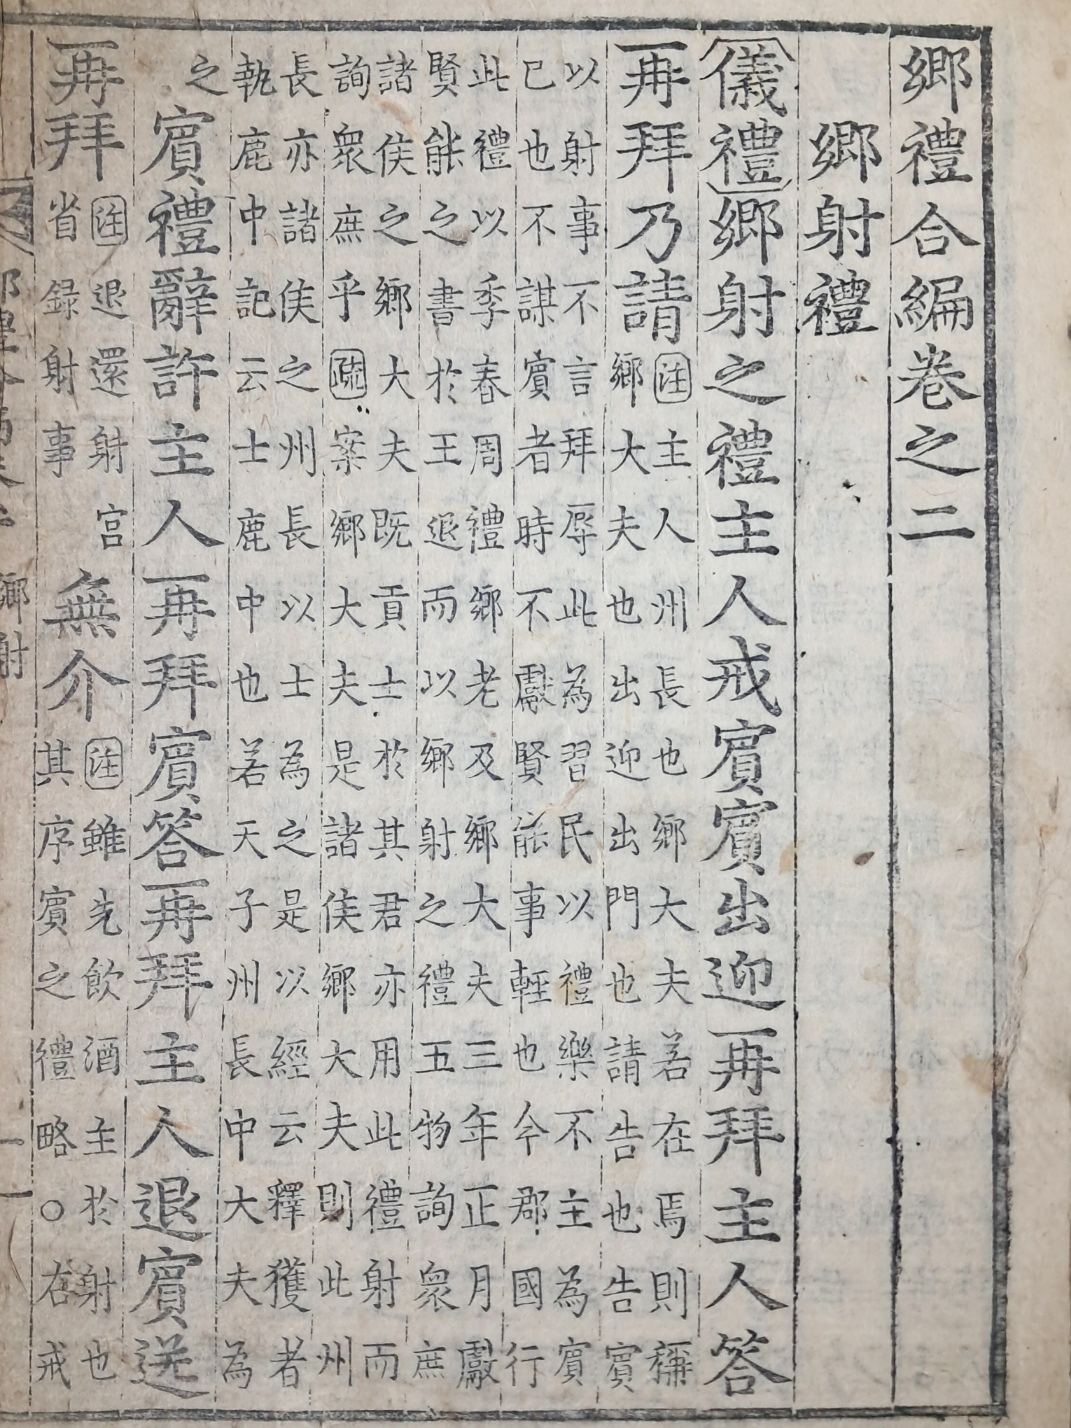 鄉禮合編卷之二
鄉射禮
儀禮鄉射之禮主人戒賓賓出迎再拜主人答
再拜乃請
注主人州長也鄉大夫若在焉則稱
鄉大夫也出迎出門也請告也告賓
以射事不言拜辱此為習民以禮樂不主為賓
已也不謀賓者時不獻賢能事輊也今郡國行
此禮以季春周禮鄉老及鄉大夫三年正月獻
賢能之書於王退而以鄉射之禮五物詢衆庶
諸侯之鄉大夫既貢士於其君亦用此禮射而
詢衆庶乎疏案鄉大夫是諸侯鄉大夫則此州
長亦諸侯之州長以士為之是以經云釋獲者
執鹿中記云士鹿中也若天子州長中大夫為
之
賓禮辭許主人再拜賓答再拜主人退賓送
再拜
注退還射宮
省録射事
無介
注雖先飲酒主於射也
其序賓之禮略○右戒
鄉射